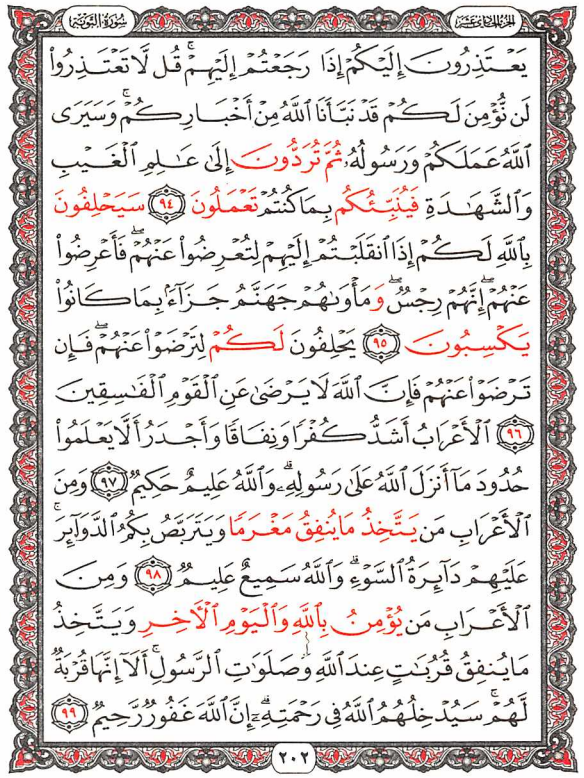 الجزء الحادي عشر
سورة التوبة
يَعۡتَذِرُونَ إِلَيۡكُمۡ إِذَا رَجَعۡتُمۡ إِلَيۡهِمۡۚ قُل لَّا تَعۡتَذِرُواْ
لَن نُّؤۡمِنَ لَكُمۡ قَدۡ نَبَّأَنَا ٱللَّهُ مِنۡ أَخۡبَارِكُمۡۚ وَسَيَرَى
ٱللَّهُ عَمَلَكُمۡ وَرَسُولُهُۥ ثُمَّ تُرَدُّونَ إِلَىٰ عَٰلِمِ ٱلۡغَيۡبِ
وَٱلشَّهَٰدَةِ فَيُنَبِّئُكُم بِمَا كُنتُمۡ تَعۡمَلُونَ ٩٤ سَيَحۡلِفُونَ
بِٱللَّهِ لَكُمۡ إِذَا ٱنقَلَبۡتُمۡ إِلَيۡهِمۡ لِتُعۡرِضُواْ عَنۡهُمۡۖ فَأَعۡرِضُواْ
عَنۡهُمۡۖ إِنَّهُمۡ رِجۡسٞۖ وَمَأۡوَىٰهُمۡ جَهَنَّمُ جَزَآءَۢ بِمَا كَانُواْ
يَكۡسِبُونَ ٩٥ يَحۡلِفُونَ لَكُمۡ لِتَرۡضَوۡاْ عَنۡهُمۡۖ فَإِن
تَرۡضَوۡاْ عَنۡهُمۡ فَإِنَّ ٱللَّهَ لَا يَرۡضَىٰ عَنِ ٱلۡقَوۡمِ ٱلۡفَٰسِقِينَ
٩٦ ٱلۡأَعۡرَابُ أَشَدُّ كُفۡرٗا وَنِفَاقٗا وَأَجۡدَرُ أَلَّا يَعۡلَمُواْ
حُدُودَ مَآ أَنزَلَ ٱللَّهُ عَلَىٰ رَسُولِهِۦۗ وَٱللَّهُ عَلِيمٌ حَكِيمٞ ٩٧ وَمِنَ
ٱلۡأَعۡرَابِ مَن يَتَّخِذُ مَا يُنفِقُ مَغۡرَمٗا وَيَتَرَبَّصُ بِكُمُ ٱلدَّوَآئِرَۚ
عَلَيۡهِمۡ دَآئِرَةُ ٱلسَّوۡءِۗ وَٱللَّهُ سَمِيعٌ عَلِيمٞ ٩٨ وَمِنَ
ٱلۡأَعۡرَابِ مَن يُؤۡمِنُ بِٱللَّهِ وَٱلۡيَوۡمِ ٱلۡأٓخِرِ وَيَتَّخِذُ
مَا يُنفِقُ قُرُبَٰتٍ عِندَ ٱللَّهِ وَصَلَوَٰتِ ٱلرَّسُولِۚ أَلَآ إِنَّهَا قُرۡبَةٞ
لَّهُمۡۚ سَيُدۡخِلُهُمُ ٱللَّهُ فِي رَحۡمَتِهِۦٓۚ إِنَّ ٱللَّهَ غَفُورٞ رَّحِيمٞ ٩٩
٢٠٢